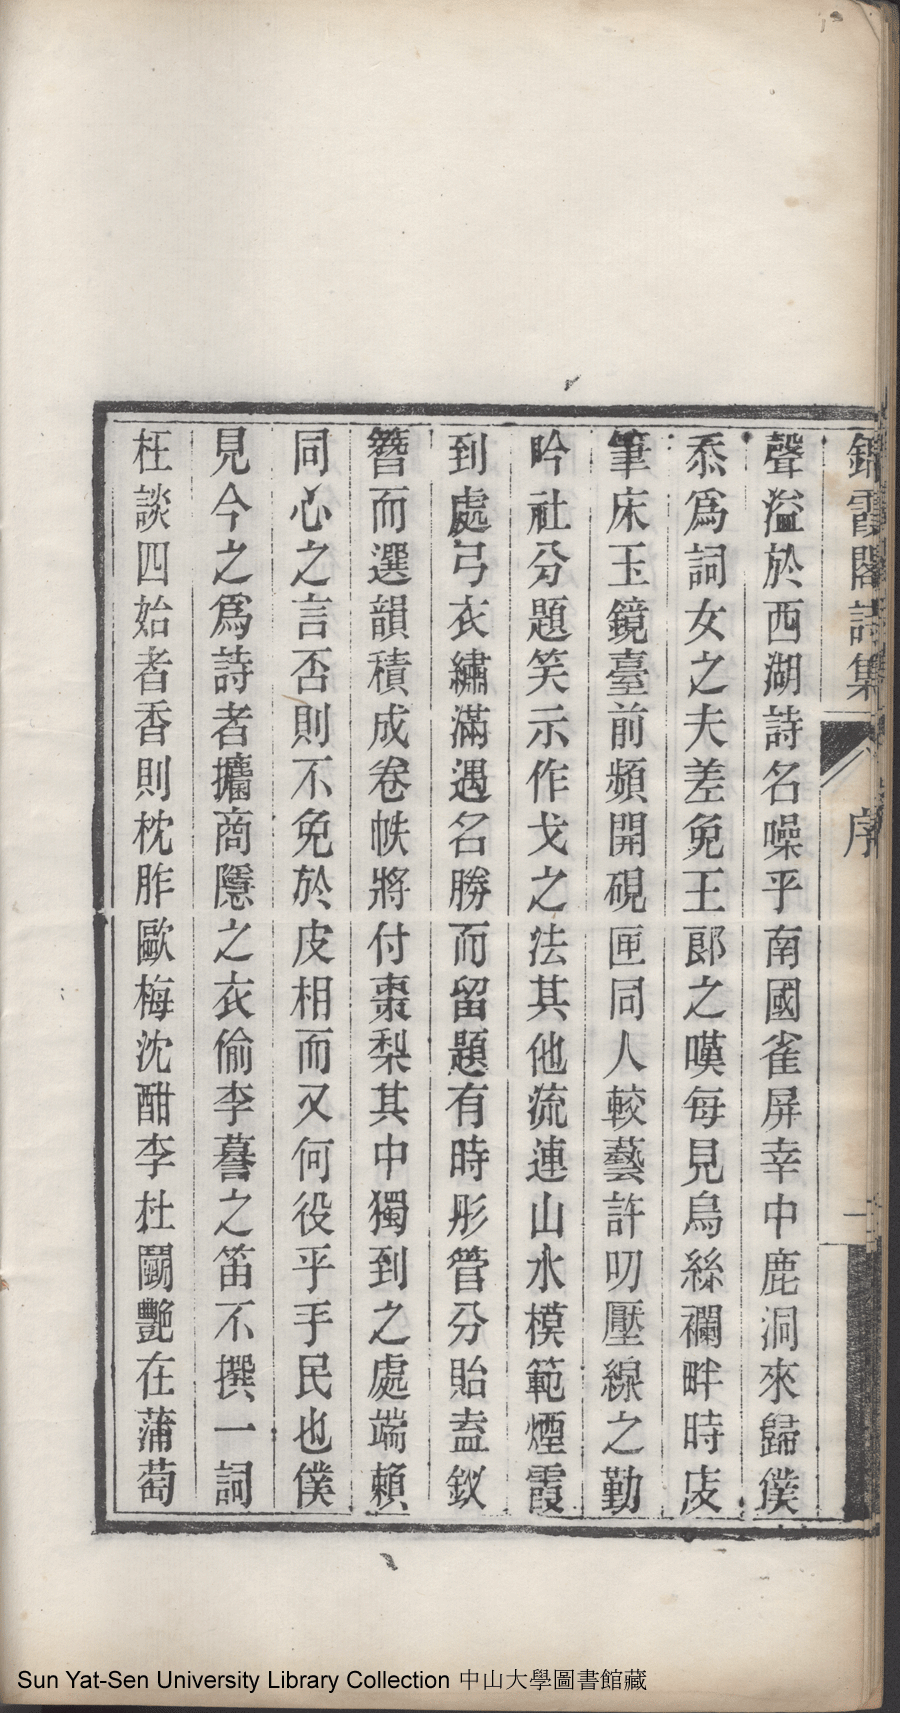 錦霞閣詩集
序
一
聲溢於西湖詩名噪乎南國雀屏幸中鹿洞來歸僕
忝爲詞女之夫差免王郎之嘆每見烏絲襴畔時庋
筆床玉鏡臺前頻開硯匣同人較藝許叨壓線之勤
吟社分題笑示作戈之法其他流連山水模範煙霞
到處弓衣繡滿遇名勝而留題有時彤管分貽盍釵
簪而選韻積成卷帙將付棗梨其中獨到之處端賴
同心之言否則不免於皮相而又何役乎手民也僕
見今之爲詩者攟商隱之衣偷李謩之笛不撰一詞
枉談四始者香則枕胙歐梅沈酣李杜鬭艷在蒲萄
Sun Yat-Sen University Library Collection 中山大學圖書館藏